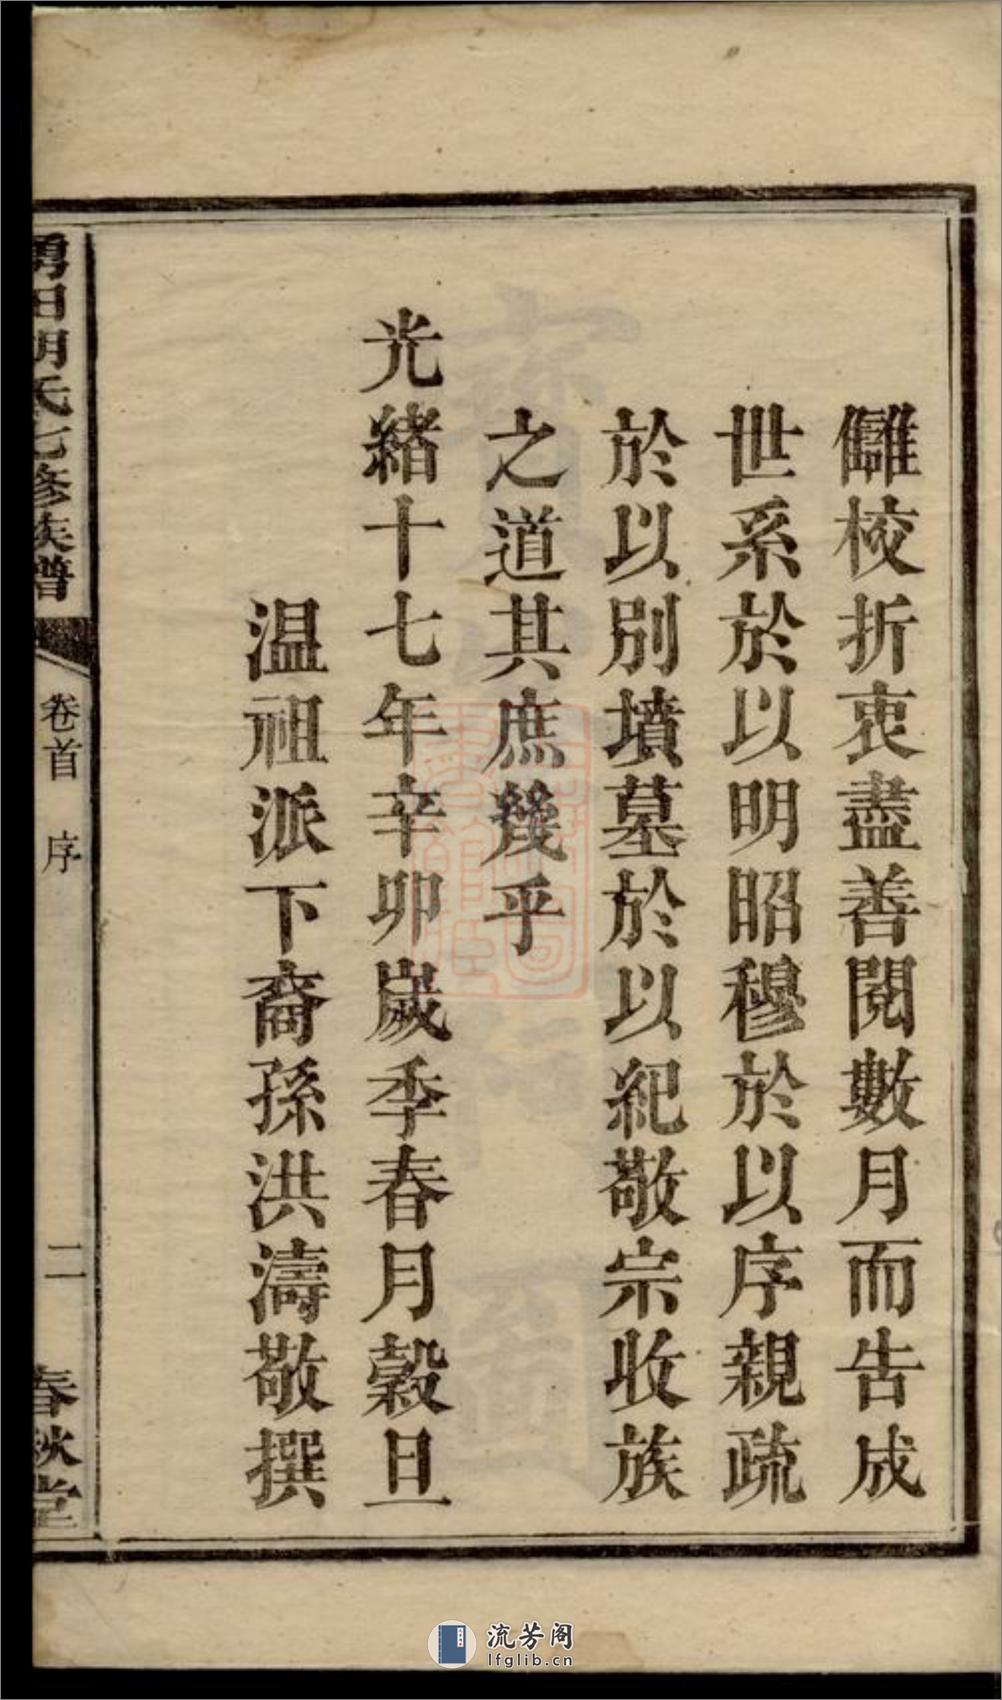 讎校折衷盡善閱數月而告成
世系於以明昭穆於以序親疏
於以別墳墓於以紀敬宗收族
之道其庶幾乎
光緒十七年辛卯歲季春月穀旦
温祖派下裔孫洪濤敬撰
田胡氏七修族譜
卷首 序
二
春秋堂
流芳阁
lfglib.cn